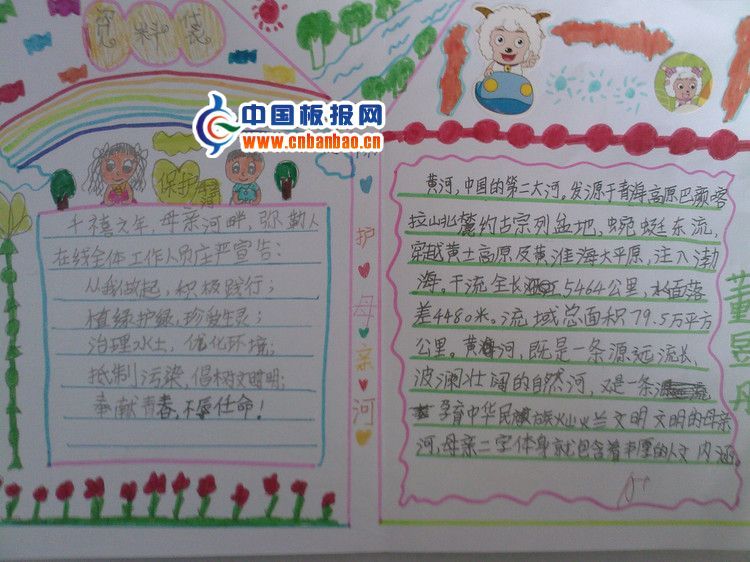 资料袋
中国板报网
www.cnbanbao.cn
保护
护母亲河
千禧之年，母亲河畔，弥勒人
在线全体工作人员庄严宣告：
从我做起，积极践行；
植绿护绿，珍爱生灵；
治理水土，优化环境；
抵制污染，倡树文明；
奉献青春，不辱任命！
黄河，中国的第二大河。发源于青海高原巴颜客
拉山北麓约古宗列盆地，蜿蜒东流，
穿越黄土高原及黄淮海大平原，注入渤
海。干流全长5464公里，水面落
差4480米。流域总面积79.5万平方
公里。黄河，既是一条源远流长，
波澜壮阔的自然河，又是一条
孕育中华民族火山火兰文明文明的母亲
河，母亲二字体身就包含着丰厚的人文内涵。
董昱丹